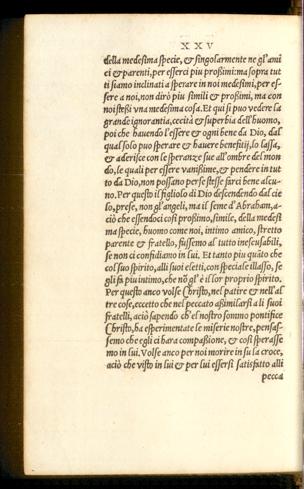 XXV
della medesima specie, & singolarmente ne gl'ami
ci & parenti, per esserci piu proßimi: ma sopra tut
ti siamo inclinati a sperare in noi medesimi, per es-
sere a noi, non dirò piu simili & proßimi, ma con
noi steßi vna medesima cosa. Et qui si puo vedere la
grande ignorantia, cecità & superbia dell'huomo,
poi che hauendo l'essere & ogni bene da Dio, dal
qual solo puo sperare & hauere benefitij, lo lassa,
& aderisce con le speranze sue all'ombre del mon
do, le quali per essere vanißime, & pendere in tut
to da Dio, non possano per se stesse farci bene alcu-
no. Per questo il figliolo di Dio descendendo dal cie
lo, prese, non gl'angeli, ma il seme d'Abraham, a-
ciò che essendoci così proßimo, simile, della medesi
ma specie, huomo come noi, intimo amico, stretto
parente & fratello, fussemo al tutto inescusabili,
se non ci confidiamo in lui. Et tanto piu quãto che
col suo spirito, alli suoi eletti, con speciale illasso, se
gli fa piu intimo, che nõ gl'è il lor proprio spirito.
Per questo anco volse Christo, nel patire & nell'al
tre cose, eccetto che nel peccato aßimilarsi a li suoi
fratelli, aciò sapendo ch'el nostro sommo pontifice
Christo, ha esperimentate le miserie nostre, pensas-
semo che egli ci hara compaßione, & così sperasse
mo in lui. Volse anco per noi morire in su la croce,
aciò che visto in lui & per lui essersi satisfatto alli
pecca